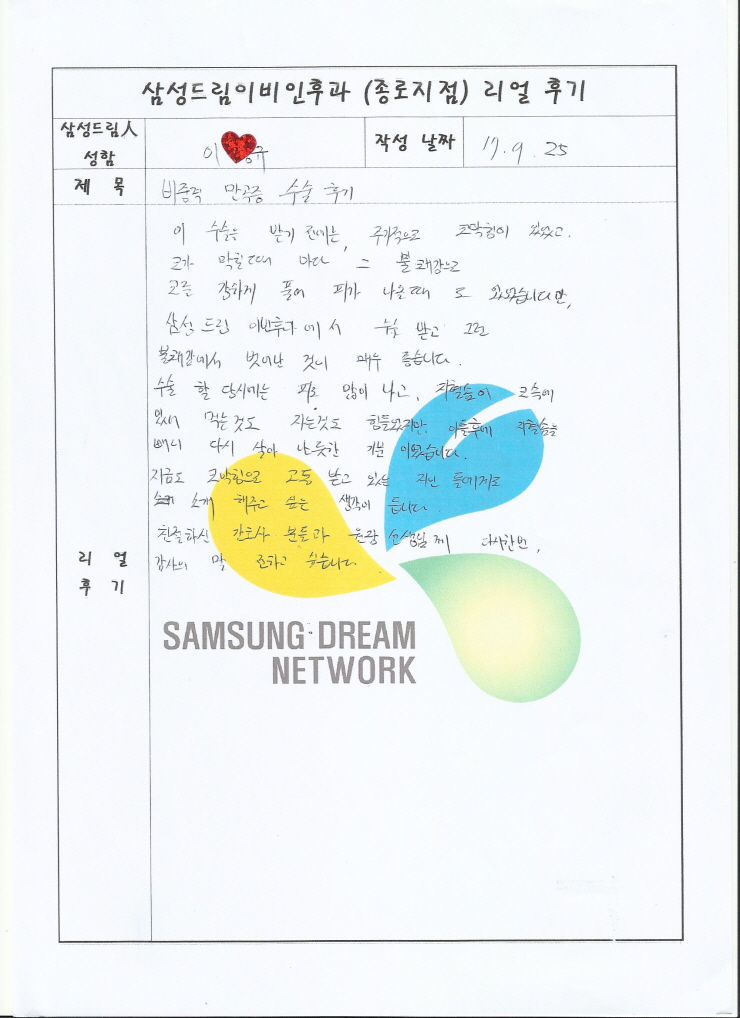 삼성드림이비인후과 (종로지점) 리얼 후기
삼성드림人 성함
이 규
작성 날짜
17. 9. 25
제 목
비중격 만곡증 수술 후기
리 얼 후 기
이 수술을 받기 전에는, 주기적으로 코막힘이 있었고.
코가 막힐때 마다 그 불쾌감으로
코를 강하게 풀어 피가 나온때 도 있었습니다만,
삼성 드림 이빈후과에서 수술 받고 그런
불쾌감에서 벗어난 것이 매우 좋습니다.
수술 할 당시에는 피도 많이 나고, 지혈솜이 코속에
있어 먹는것도 자는것도 힘들었지만, 이틀후에 지혈솜을
빼니 다시 살아 난듯한 기분 이었습니다.
지금도 코막힘으로 고통 받고 있는 지인 들에게도
소개 해주고 싶은 생각이 듭니다.
친절하신 간호사 분들과 원장 선생님 께 다시한번,
감사의 말 전하고 싶습니다.
SAMSUNG DREAM
NETWORK